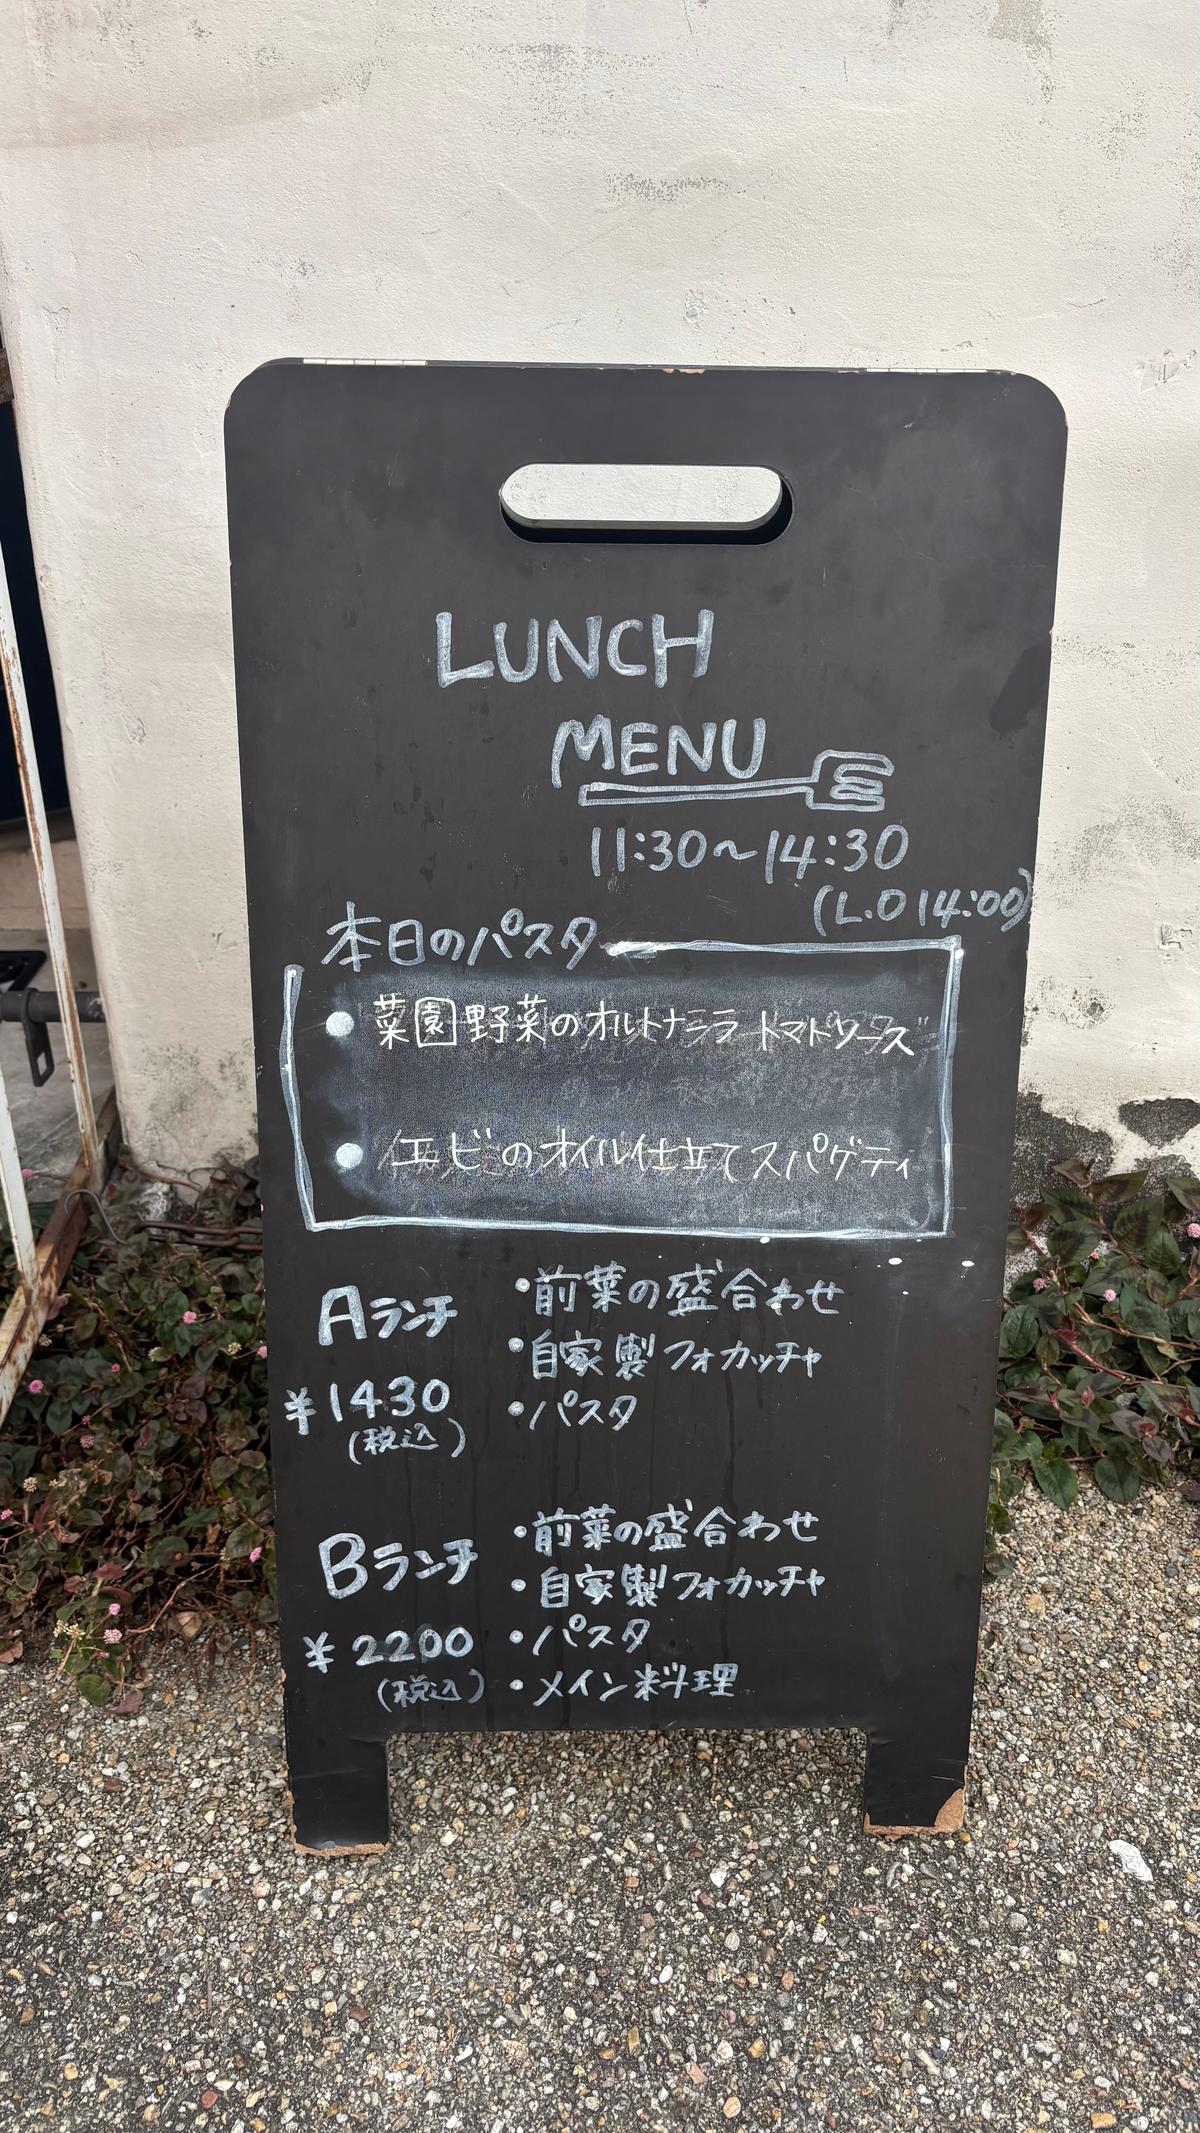 LUNCH
MENU
11:30〜14:30
(L.O 14:00)
本日のパスタ
● 菜園野菜のオルトナーラ トマトソース
● エビのオイル仕立てスパゲティ
Aランチ
¥1430
(税込)
・前菜の盛合わせ
・自家製フォカッチャ
・パスタ
Bランチ
¥2200
(税込)
・前菜の盛合わせ
・自家製フォカッチャ
・パスタ
・メイン料理